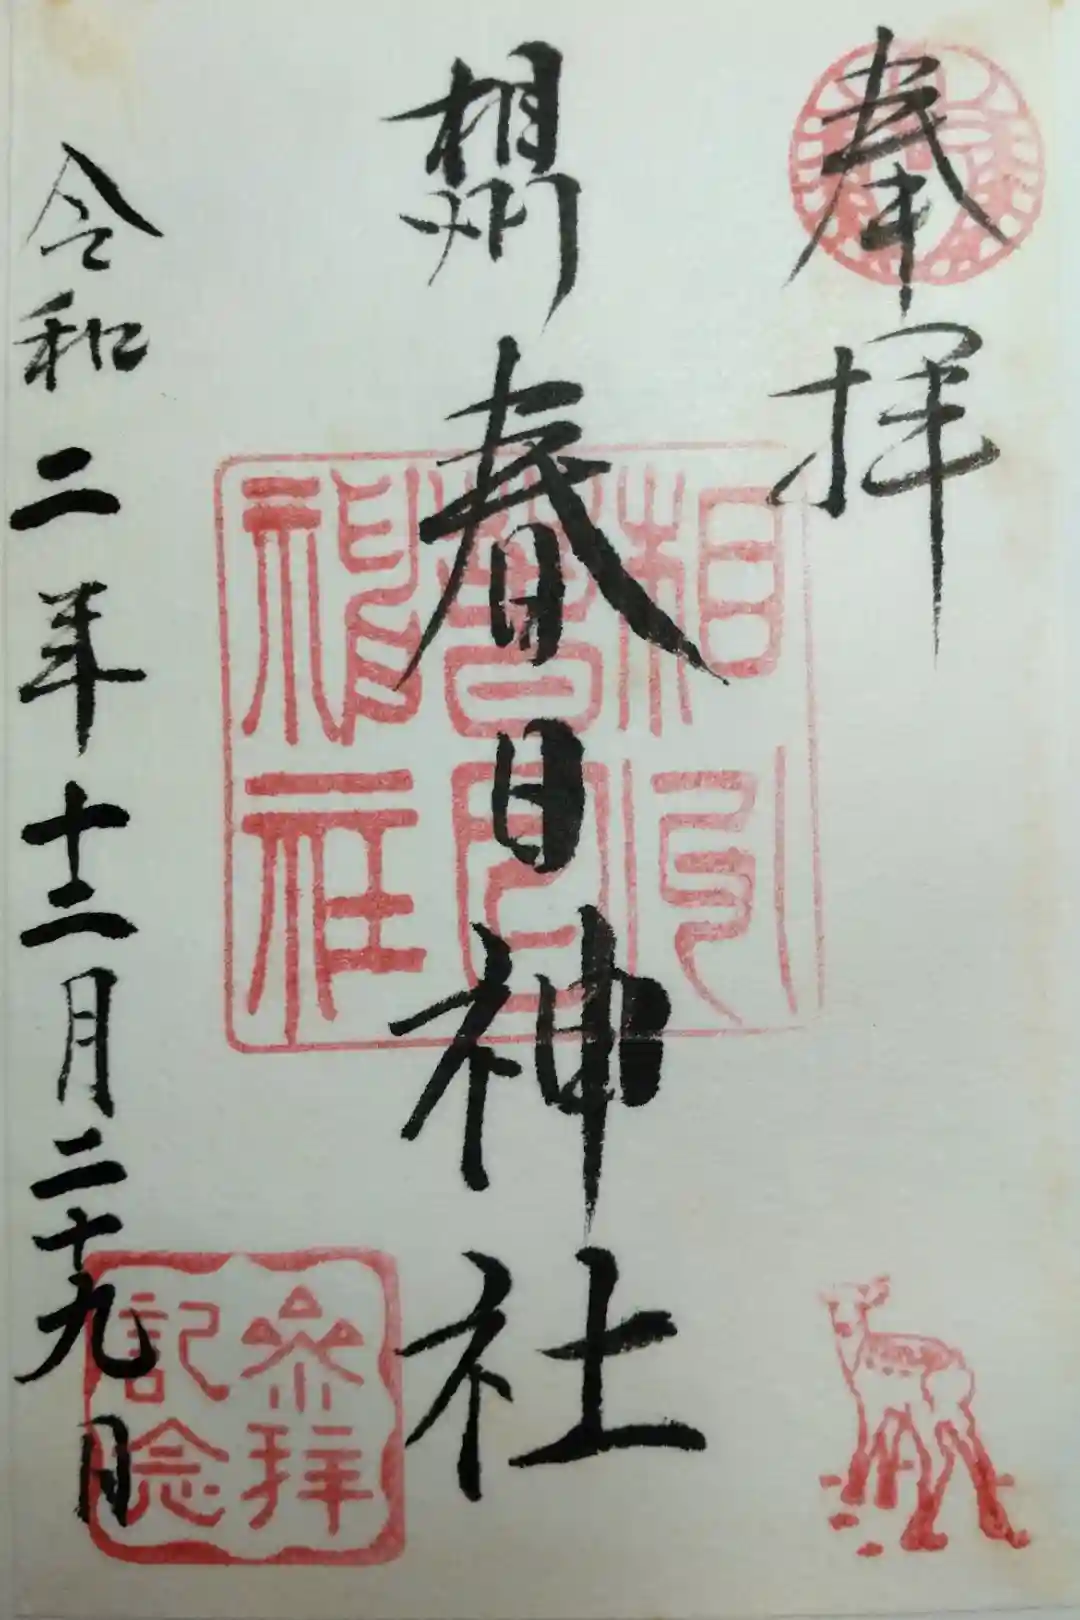 奉拝
相州
春日神社
令和二年十二月二十九日
相州
春日
神社
参拝
記念